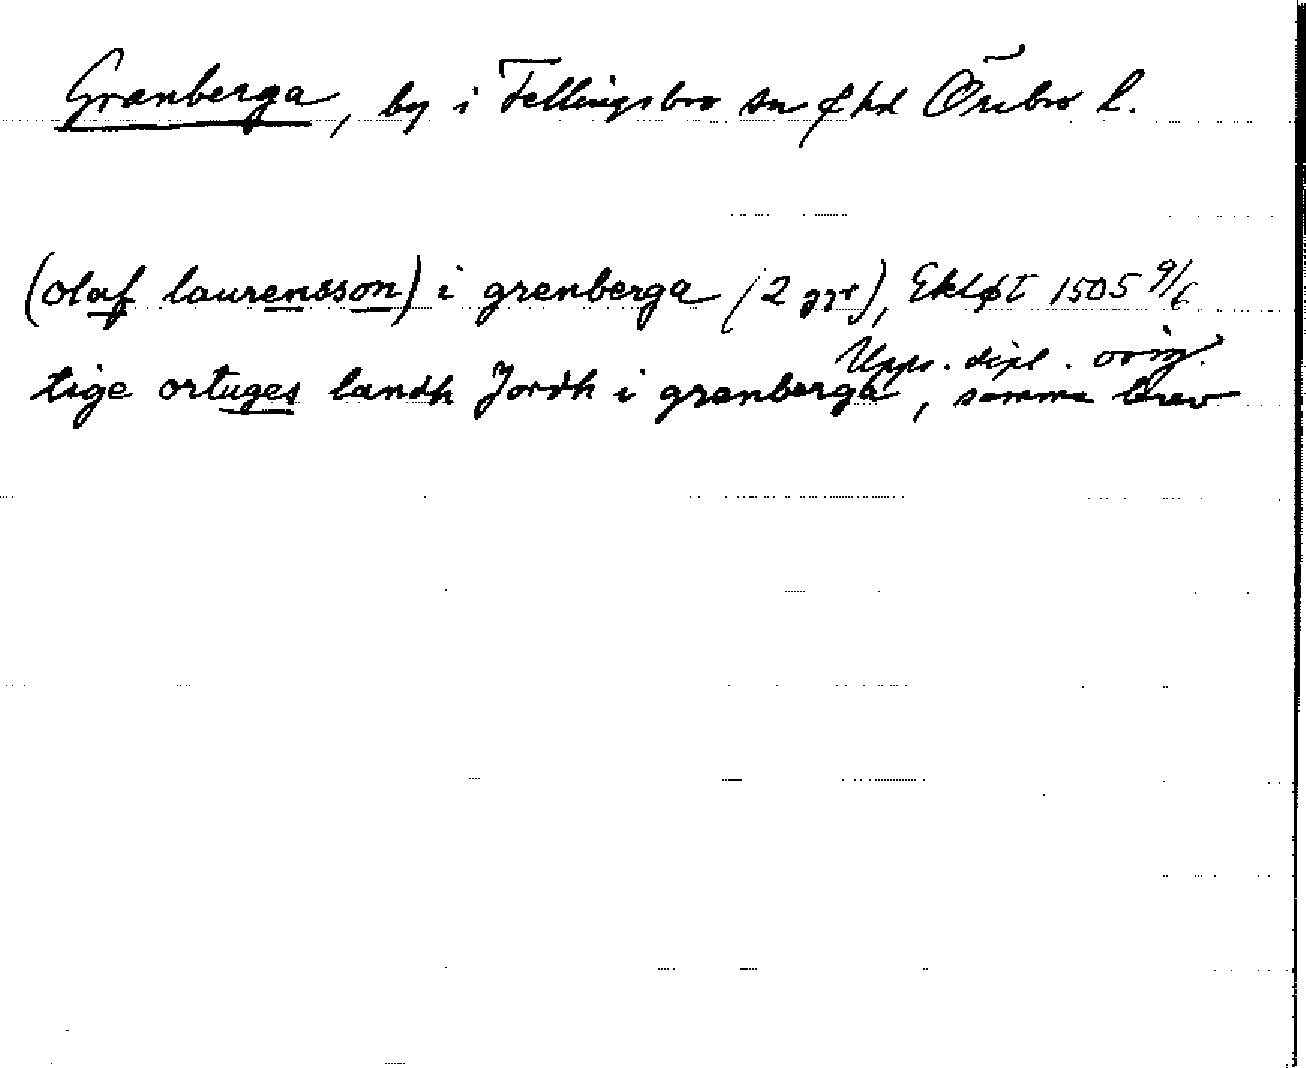 Granberga, by i Fellingsbro sn & hd Örebro l.
(olaf laurensson) i grenberga (2 ggr), Ekløt 1505 9/6
Upps. dipl. orig.
tige ortuges landh Jordh i granberga, samma brev